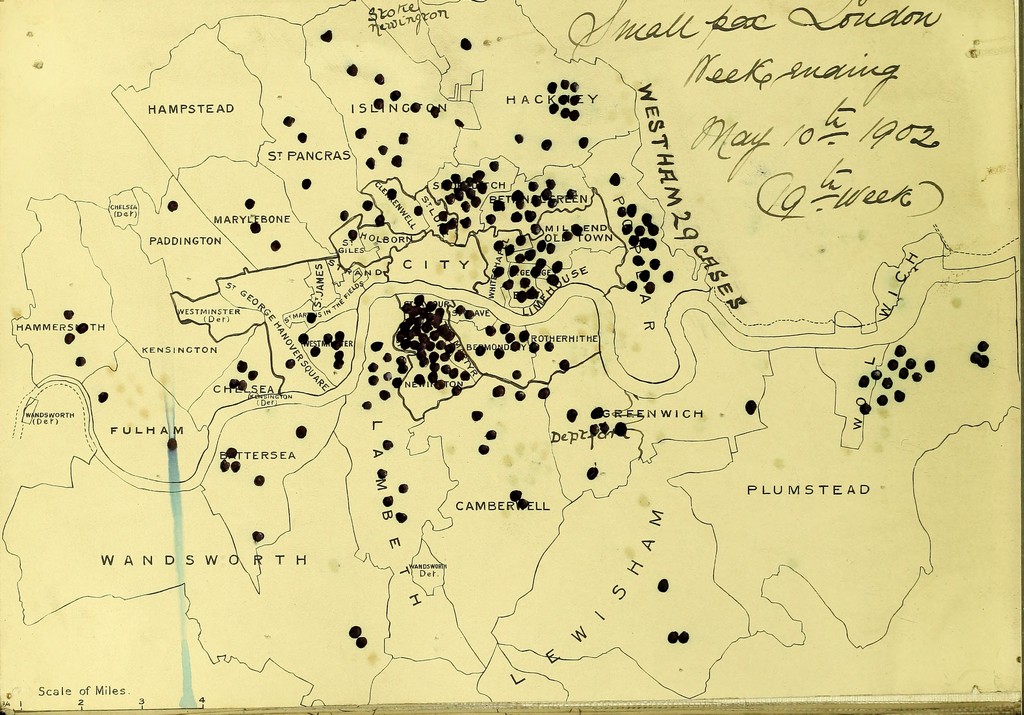 Stoke
Newington
Small pox London
Week ending
May 10th 1902
(9th Week)
HAMPSTEAD
ISLINGTON
HACKNEY
WESTHAM 29 CASES
ST PANCRAS
CHELSEA
(Det)
MARYLEBONE
PADDINGTON
CLERKENWELL
ST LU
SHOREDITCH
BETHNAL GREEN
HOLBORN
ST
GILES
STRAND
CITY
MILE END
OLD TOWN
POPLAR
LIMEHOUSE
ST JAMES
ST MARTINS IN THE FIELDS
WESTMINSTER
(Det)
ST GEORGE HANOVER SQUARE
WESTMINSTER
HAMMERSMITH
KENSINGTON
BERMONDSEY
ROTHERHITHE
NEWINGTON
CHELSEA
KENSINGTON
(Det)
WANDSWORTH
(Det)
FULHAM
BATTERSEA
LAMBETH
GREENWICH
Deptford
WOOLWICH
PLUMSTEAD
CAMBERWELL
WANDSWORTH
WANDSWORTH
Det.
LEWISHAM
Scale of Miles.
1 2 3 4